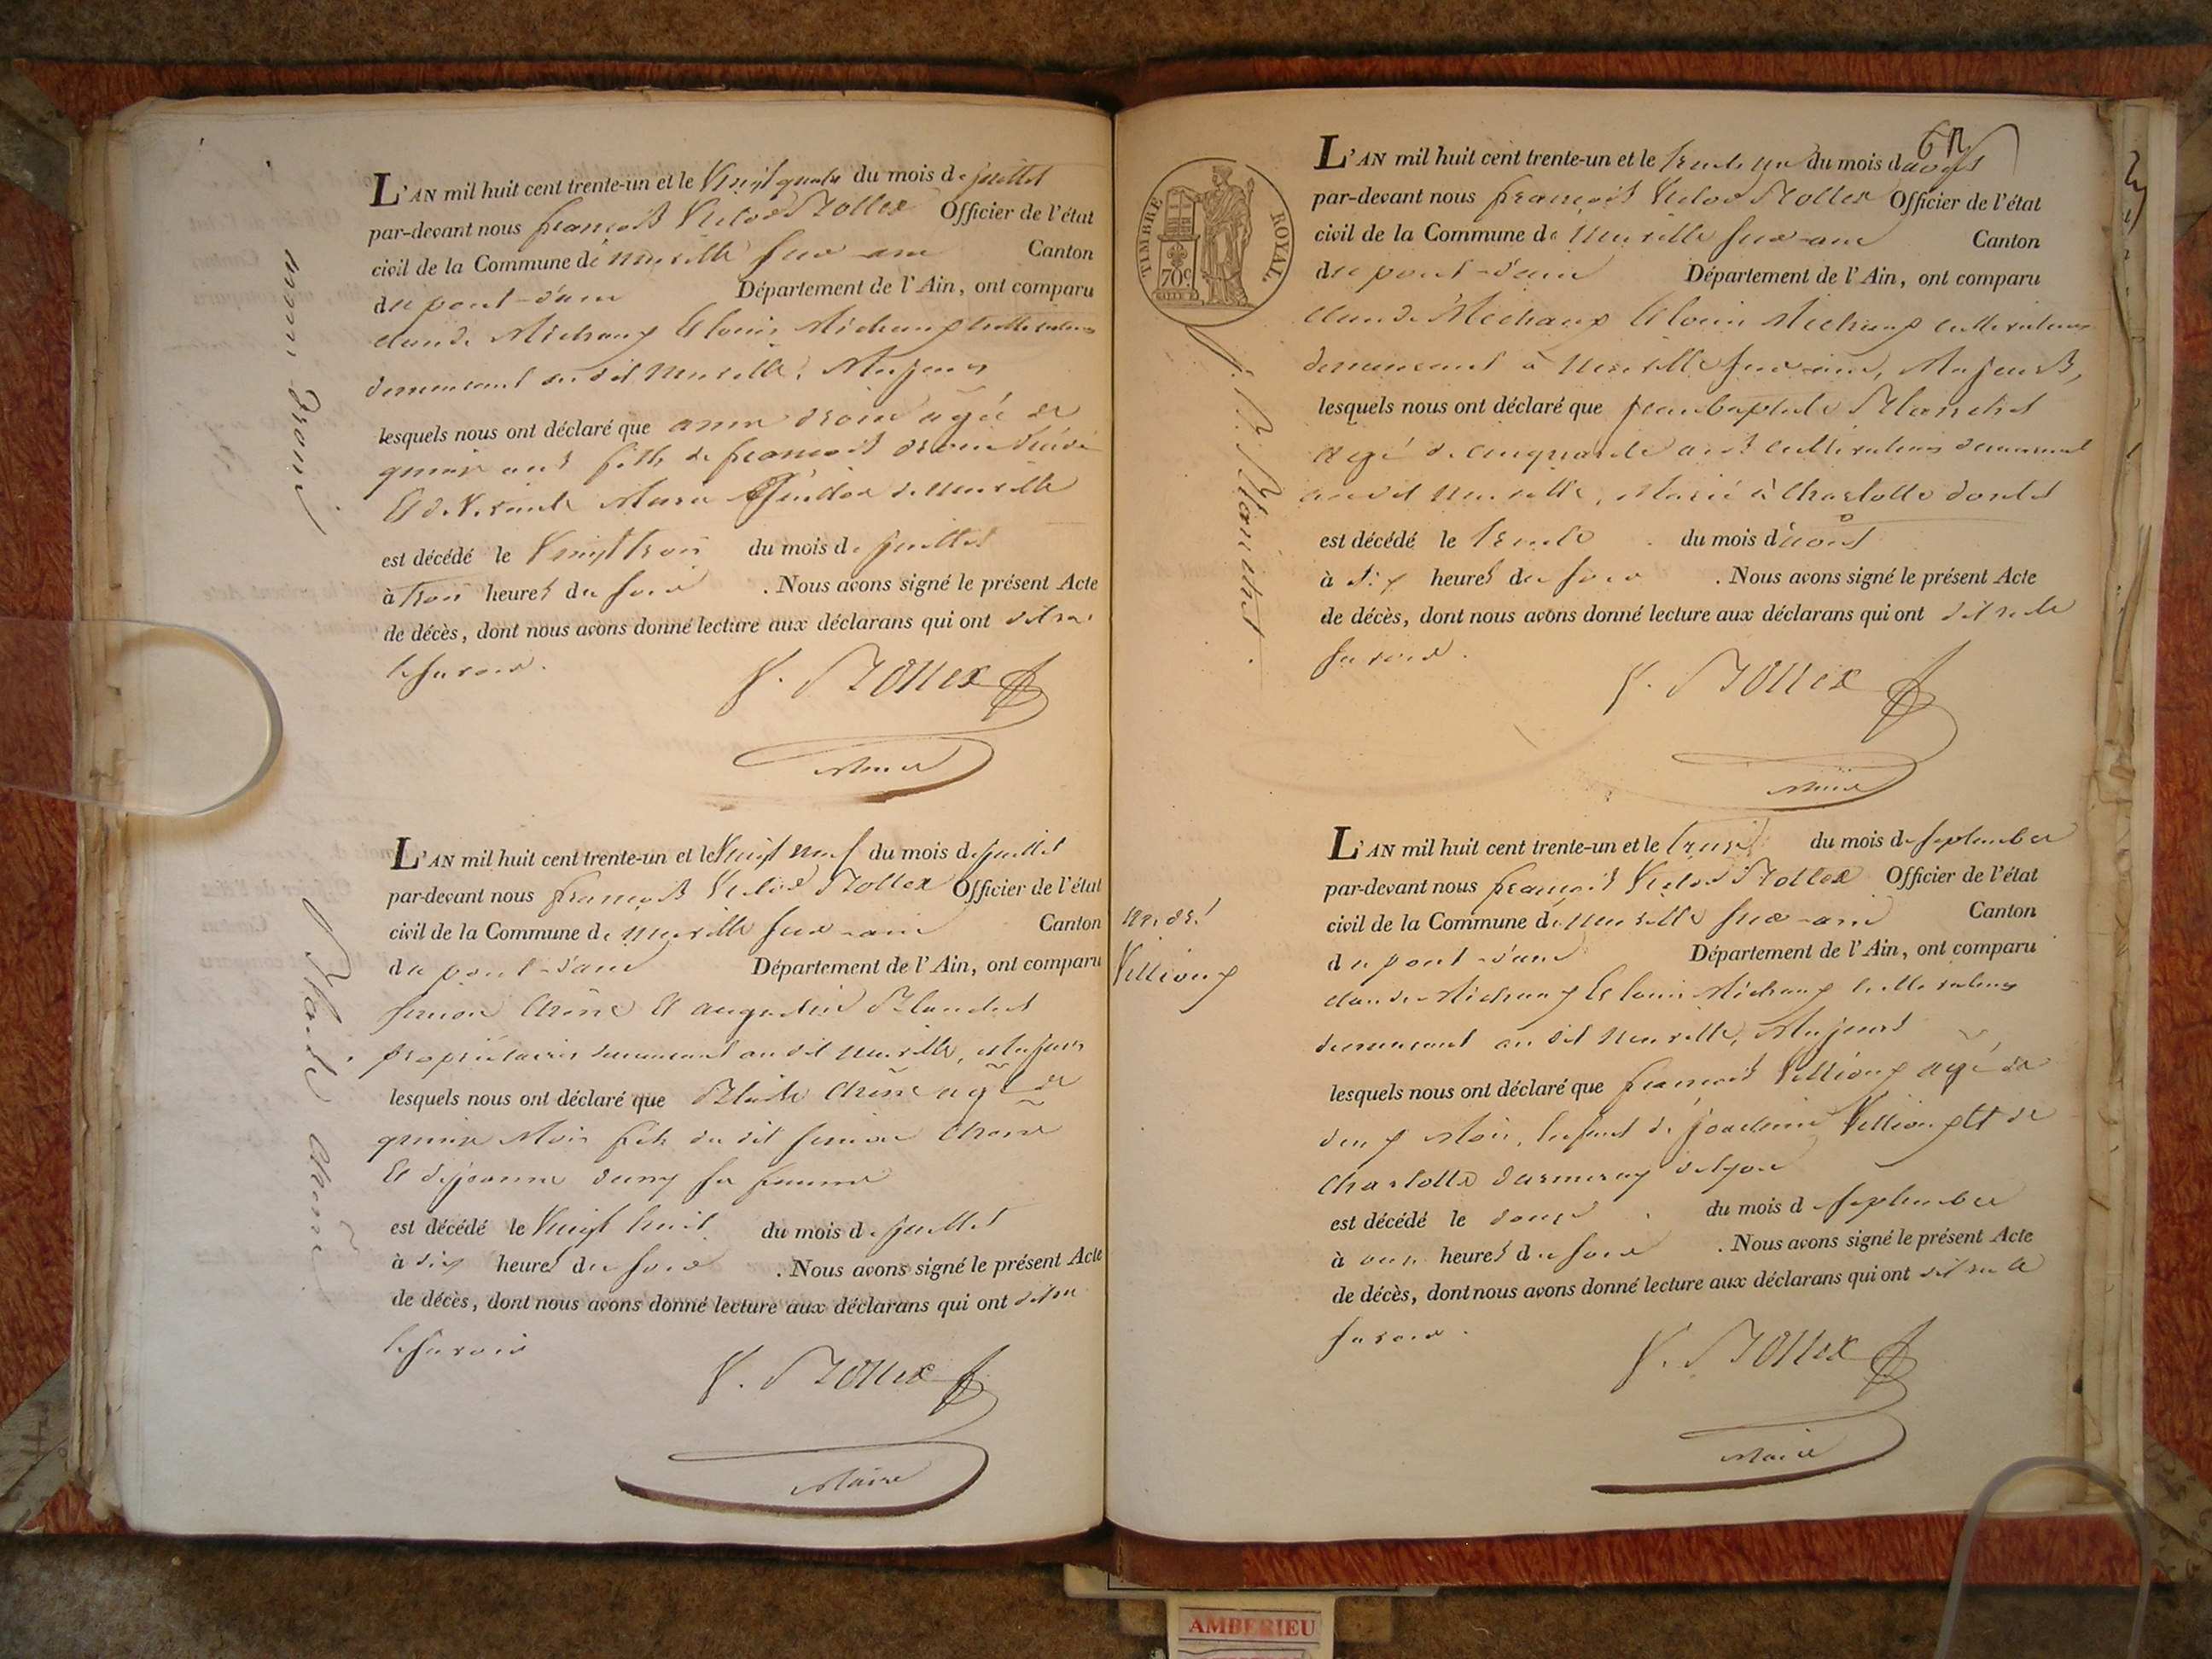 anne Droin
L'AN mil huit cent trente-un et le Vingt quatre du mois de juillet
par-devant nous françois Victor Bollex Officier de l'état
civil de la Commune de neuville sur ain Canton
du pont-d'ain Département de l'Ain, ont comparu
claude Michaux Et louis Michaux cultivateurs
demeurant au dit neuville, Majeurs
lesquels nous ont déclaré que anne droin agée de
quinze ans fille de françois droin
Et de Marie de neuville
est décédé le Vingt trois du mois de juillet
à trois heures du soir . Nous avons signé le présent Acte
de décès, dont nous avons donné lecture aux déclarans qui ont dit ne
le savoir.
V. Bollex
Maire
Claude Chêne
L'AN mil huit cent trente-un et le Vingt neuf du mois de juillet
par-devant nous françois Victor Bollex Officier de l'état
civil de la Commune de neuville sur ain Canton
du pont-d'ain Département de l'Ain, ont comparu
Chêne Et augustin Blanchet
propriétaires demeurant au dit neuville, Majeurs
lesquels nous ont déclaré que Chêne agé de
quinze Mois fils du dit Chêne
Et de jeanne sa femme
est décédé le Vingt huit du mois de juillet
à dix heures du soir . Nous avons signé le présent Acte
de décès, dont nous avons donné lecture aux déclarans qui ont dit ne
le savoir
V. Bollex
Maire
62
TIMBRE ROYAL
70 c.
J. B. Blanchet.
L'AN mil huit cent trente-un et le trente un du mois d'aoust
par-devant nous françois Victor Bollex Officier de l'état
civil de la Commune de Neuville sur-ain Canton
du pont-d'ain Département de l'Ain, ont comparu
claude Michaux Et louis Michaux cultivateurs
demeurant à Neuville sur-ain, Majeurs,
lesquels nous ont déclaré que jean baptiste Blanchet
agé de cinquante ans cultivateur demeurant
au dit Neuville, Marié à Charlotte
est décédé le trente du mois d'aoust
à dix heures du soir . Nous avons signé le présent Acte
de décès, dont nous avons donné lecture aux déclarans qui ont dit ne le
savoir.
V. Bollex
Maire
Villioux
L'AN mil huit cent trente-un et le treize du mois de septembre
par-devant nous françois Victor Bollex Officier de l'état
civil de la Commune de neuville sur-ain Canton
du pont-d'ain Département de l'Ain, ont comparu
claude Michaux Et louis Michaux cultivateurs
demeurant au dit Neuville, Majeurs
lesquels nous ont déclaré que françois Villioux agé de
deux Mois, Enfant de Villioux Et de
Charlotte de lyon
est décédé le douze du mois de septembre
à onze heures du soir . Nous avons signé le présent Acte
de décès, dont nous avons donné lecture aux déclarans qui ont dit ne le
savoir.
V. Bollex
Maire
AMBERIEU